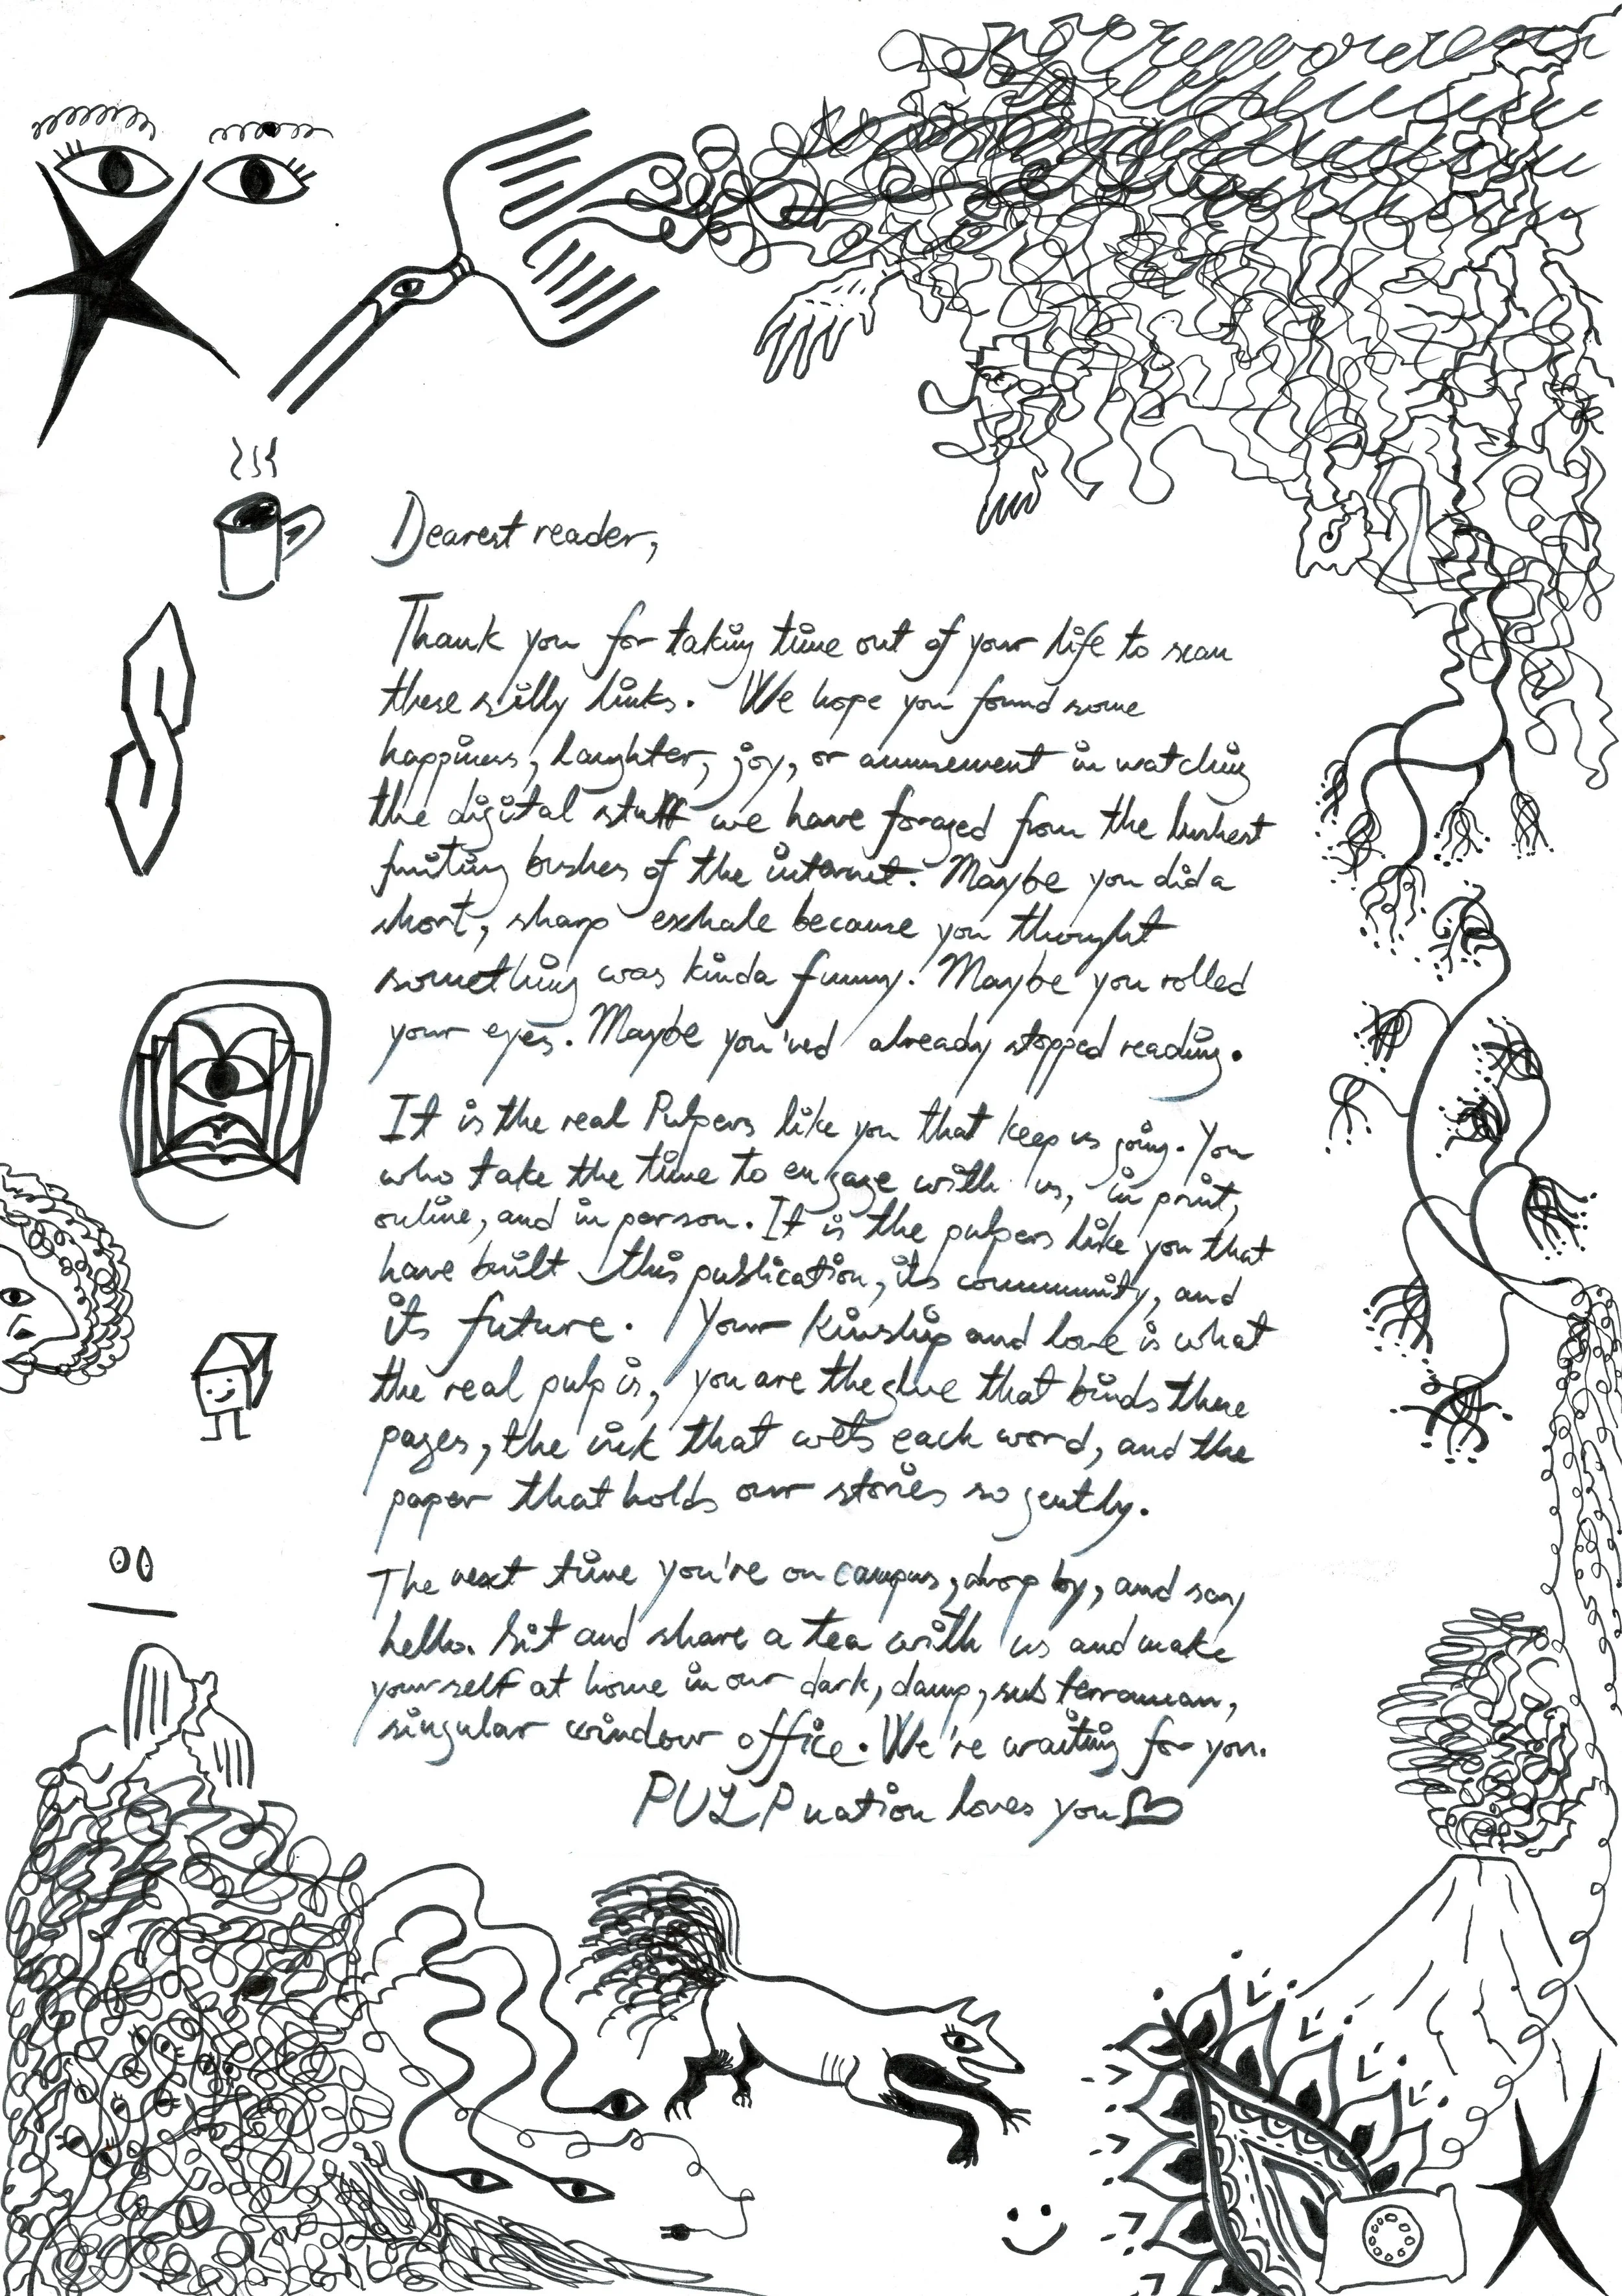 Dearest reader,
Thank you for taking time out of your life to scan
these silly links. We hope you found some
happiness, laughter, joy, or amusement in watching
the digital stuff we have foraged from the lushest
fruiting bushes of the internet. Maybe you did a
short, sharp exhale because you thought
something was kinda funny. Maybe you rolled
your eyes. Maybe you'ved already stopped reading.
It is the real Pulpers like you that keep us going. You
who take the time to engage with us, in print,
online, and in person. It is the pulpers like you that
have built this publication, its community, and
its future. Your kinship and love is what
the real pulp is, you are the glue that binds these
pages, the ink that wets each word, and the
paper that holds our stories so gently.
The next time you're on campus, drop by, and say
hello. Sit and share a tea with us and make
yourself at home in our dark, damp, subterranean,
singular window office. We're waiting for you.
PULP nation loves you